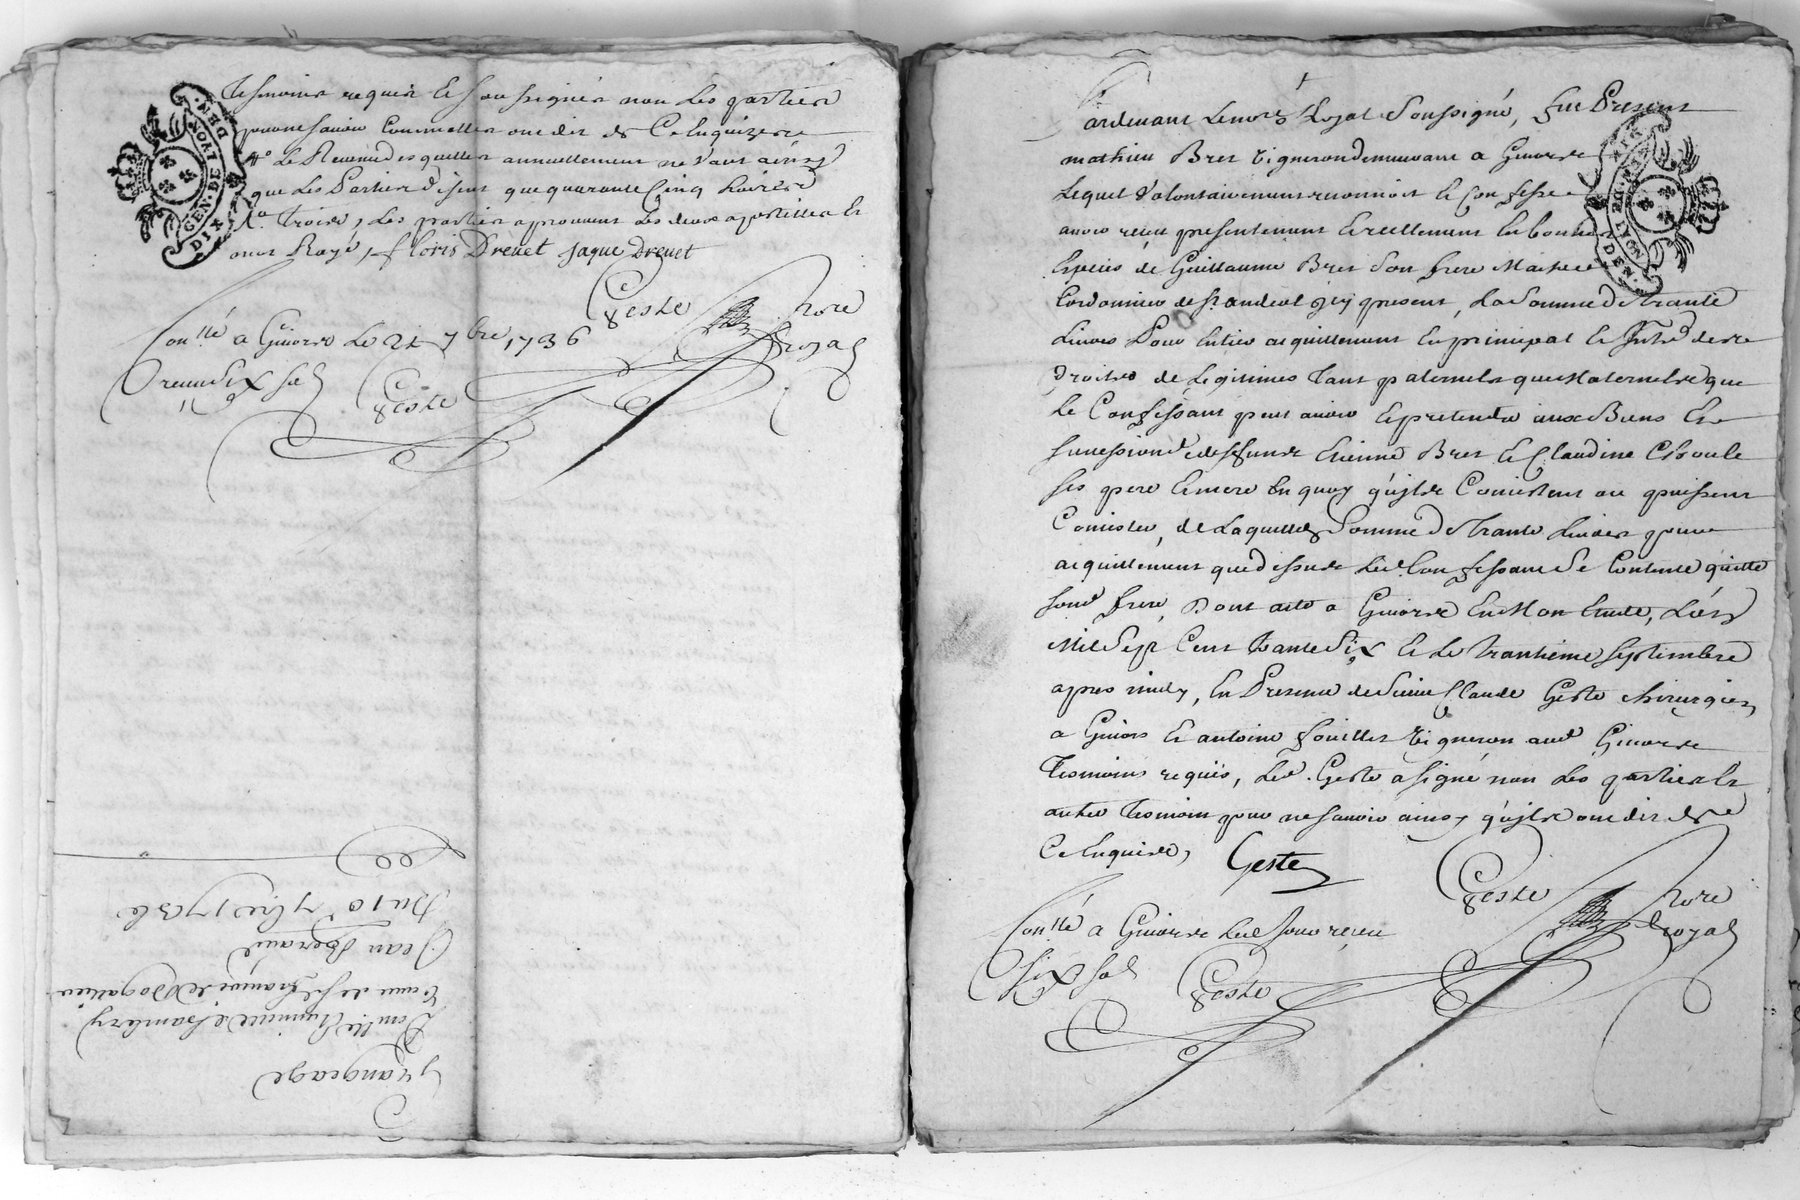 Tesmoins requis et soussignés non les parties
pour ne savoir comme elles ont dit de ce Enquizes
4° Le Revenu desquelles annuellement ne vaut ainsy
que les Parties disent que quarante Cinq livres
Troise, les parties aprouvent les deux apostilles et
mot Rayé, floris Drevet jaque Drevet
Geste nore
Royal
Con^lle a Givors Le 21 7bre 1736
Receu dix sols
Geste
Du 10 7bre 1736
Jean
de françois
Grangeage
GEN. DE LYON
DIX DEN.
Pardevant Le nore Royal Soussigné, fut Present
mathieu Bret Vigneron demeurant a Givors
Lequel Volontairement reconnoit et Confesse
avoir receu presentement et reellement En bonnes
Especes de Guillaume Bret Son frere Maitre
Cordonnier de St andeol icy present, La Somme de Trante
Livres Pour Entier acquittement En principal et Interets
droits de Legitimes Tant paternels que Maternels que
Le Confessant peut avoir et pretendre aux Biens Et
succession de deffunts Etienne Bret et Claudine
ses pere et mere En quoy qu'ils Consistent ou puissent
Consister, de Laquelle Somme de Trante Livres pour
acquittement que dessus Led Confessant Se Contente quitte
sond frere, Dont acte a Givors En Mon Etude, L'an
Mil Sept Cent Trante Six et Le Trantieme Septembre
apres midy, En Presence de Sieur Claude Geste chirurgien
a Givors Et antoine fouillet Vigneron aud Givors
Tesmoins requis, Led. Geste a signé non Les parties Et
autre Tesmoin pour ne savoir ainsy qu'ils ont dit de
Ce Enquis, Geste
Geste nore
Royal
Con^lle a Givors Led Jour receu
six sols
Geste
GEN. DE LYON
DIX DEN.